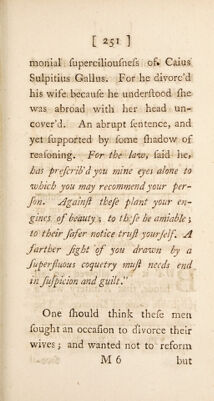 [ 251 ]
monial ſuperciliouſneſs of Caius
Sulpitius Gallus. For he divorc'd
his wife becauſe he underſtood ſhe
was abroad with her head un-
cover'd. An abrupt ſentence, and
yet ſupported by ſome ſhadow of
reaſoning. For the law, ſaid he,
has preſcrib'd you mine eyes alone to
which you may recommend your per-
ſon. Againſt theſe plant your en-
gines of beauty; to theſe be amiable;
to their ſafer notice truſt yourſelf. A
farther ſight of you drawn by a
ſuperfluous coquetry muſt needs end
in ſuſpicion and guilt."
One ſhould think theſe men
ſought an occaſion to divorce their
wives; and wanted not to reform
M 6 but